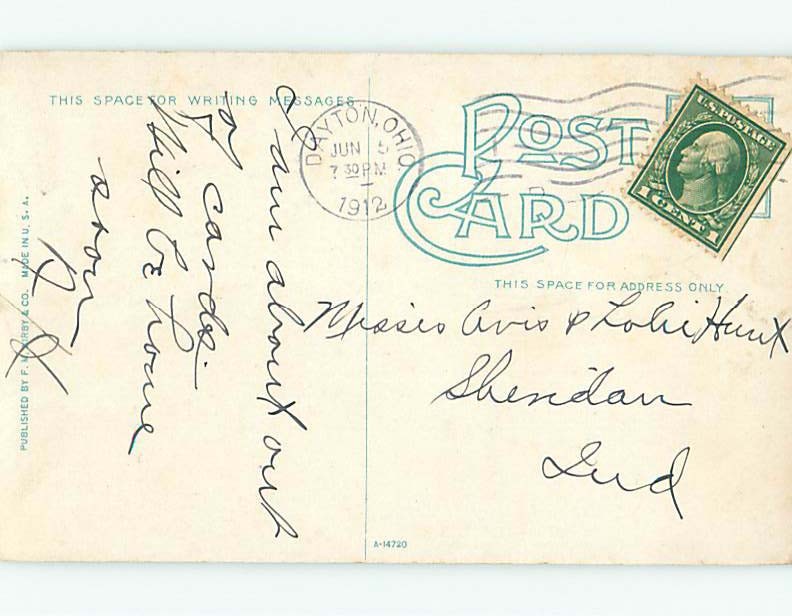 THIS SPACE FOR WRITING MESSAGES
I am about out
of cards.
Will be home
soon
DAYTON, OHIO
JUN 5
7 30 PM
1912
POST
CARD
U.S. POSTAGE
1 CENT 1
THIS SPACE FOR ADDRESS ONLY.
Misses Avis & Lolie Hunt
Sheridan
Ind
PUBLISHED BY F. M. KIRBY & CO. MADE IN U. S. A.
A-14720